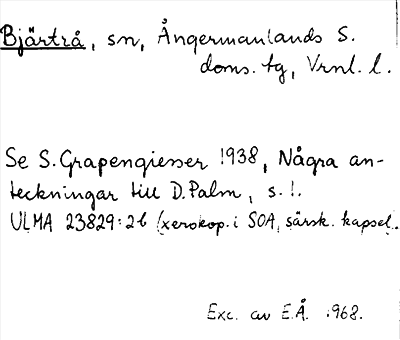 Bjärtrå, sn, Ångermanlands S.
doms. tg, Vrnl. l.
Se S. Grapengiesser 1938, Några an-
teckningar till D. Palm, s. 1.
ULMA 23829:26 (xerokop. i SOA, särsk. kapsel).
Exc. av E.Å. 1968.